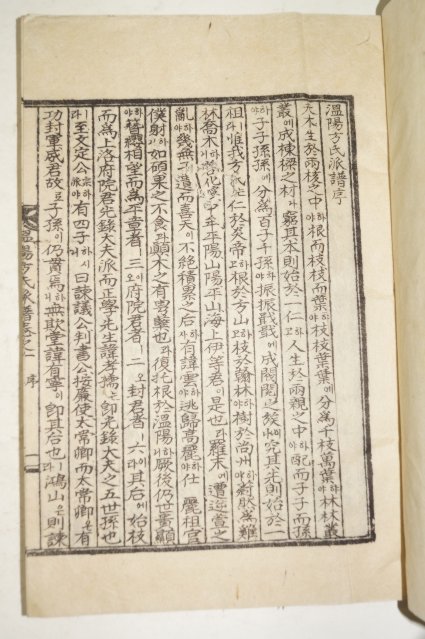 溫陽方氏派譜序
夫木生於兩核之中하야根而枝枝而葉하야枝枝葉葉에分爲千枝萬葉하야林林叢
叢에成棟樑之材나窮其木則始於一仁하고人生於兩親之中하야配而子子而孫
하야子子孫孫에分爲百子千孫하야振振戢戢에成閥閱之族이나究其先則始於一
祖라惟我方氏도仁於炎帝하고根於方山하고枝於翰林하야樹於尙州하야蔚然爲雞
林喬木이라花寧中牟平陽山陽平山海上伊等君이是也라羅末에遭逆萱之
亂하야幾無一遺而喜天이不絶積累之后하사有諱雲이逃歸高麗하야仕 麗祖官
僕射하니如碩果之不食과顚木之有蘖也라復托根於溫陽하야厥後仍世蕃顯
하야簪纓相望而爲平章者ㅣ三이오府院君者ㅣ二오封君者ㅣ六이라其后에始枝
而爲上洛府院君光祿大夫派而正學先生諱孝孺는卽光祿大夫之五世孫也
라至文定公하야有四子하시니曰諫議公判書公按廉使太常卿而太常卿은有
功封軍威君故로子孫이仍貫焉하니無欺堂諱有寧이卽其后也ㅣ라鴻山은則諫
溫陽方氏派譜卷之一 序 一